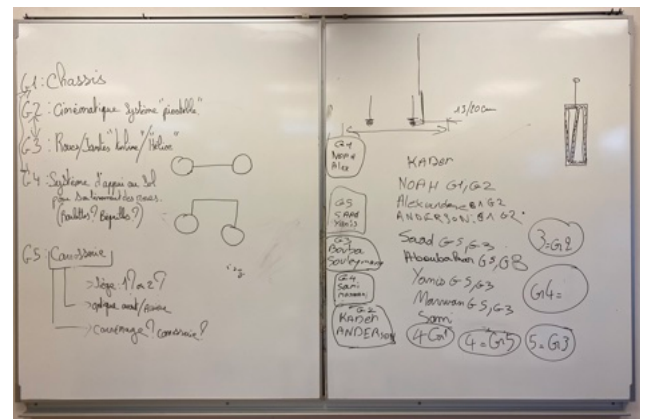 G1: Chassis
G2: Cinématique Système "pirouette"
G3: Roues/Jantes "turbine"/"Hélice"
G4: Système d'appui au Sol
pour soutènement des roues.
(Roulettes? Béquilles?)
G5: Carrosserie
→ Siège 1? ou 2?
→ optique avant/Arrière
→ Carénage? carrosserie?
13/20cm
G1
NOAH
Alex
G5
SAAD
YANIS
G3
Bouba
Souleymane
G4
Sami
G2
KADER
ANDERSON
KADER
NOAH G1, G2
Alexandre G1 G2
ANDERSON: G1 G2.
Saad G5, G3
Aboubakar G5, G3
Yanis G5, G3
Marwan G5, G3
Sami
3=G2
G4=
4 G1
4=G5
5=G3